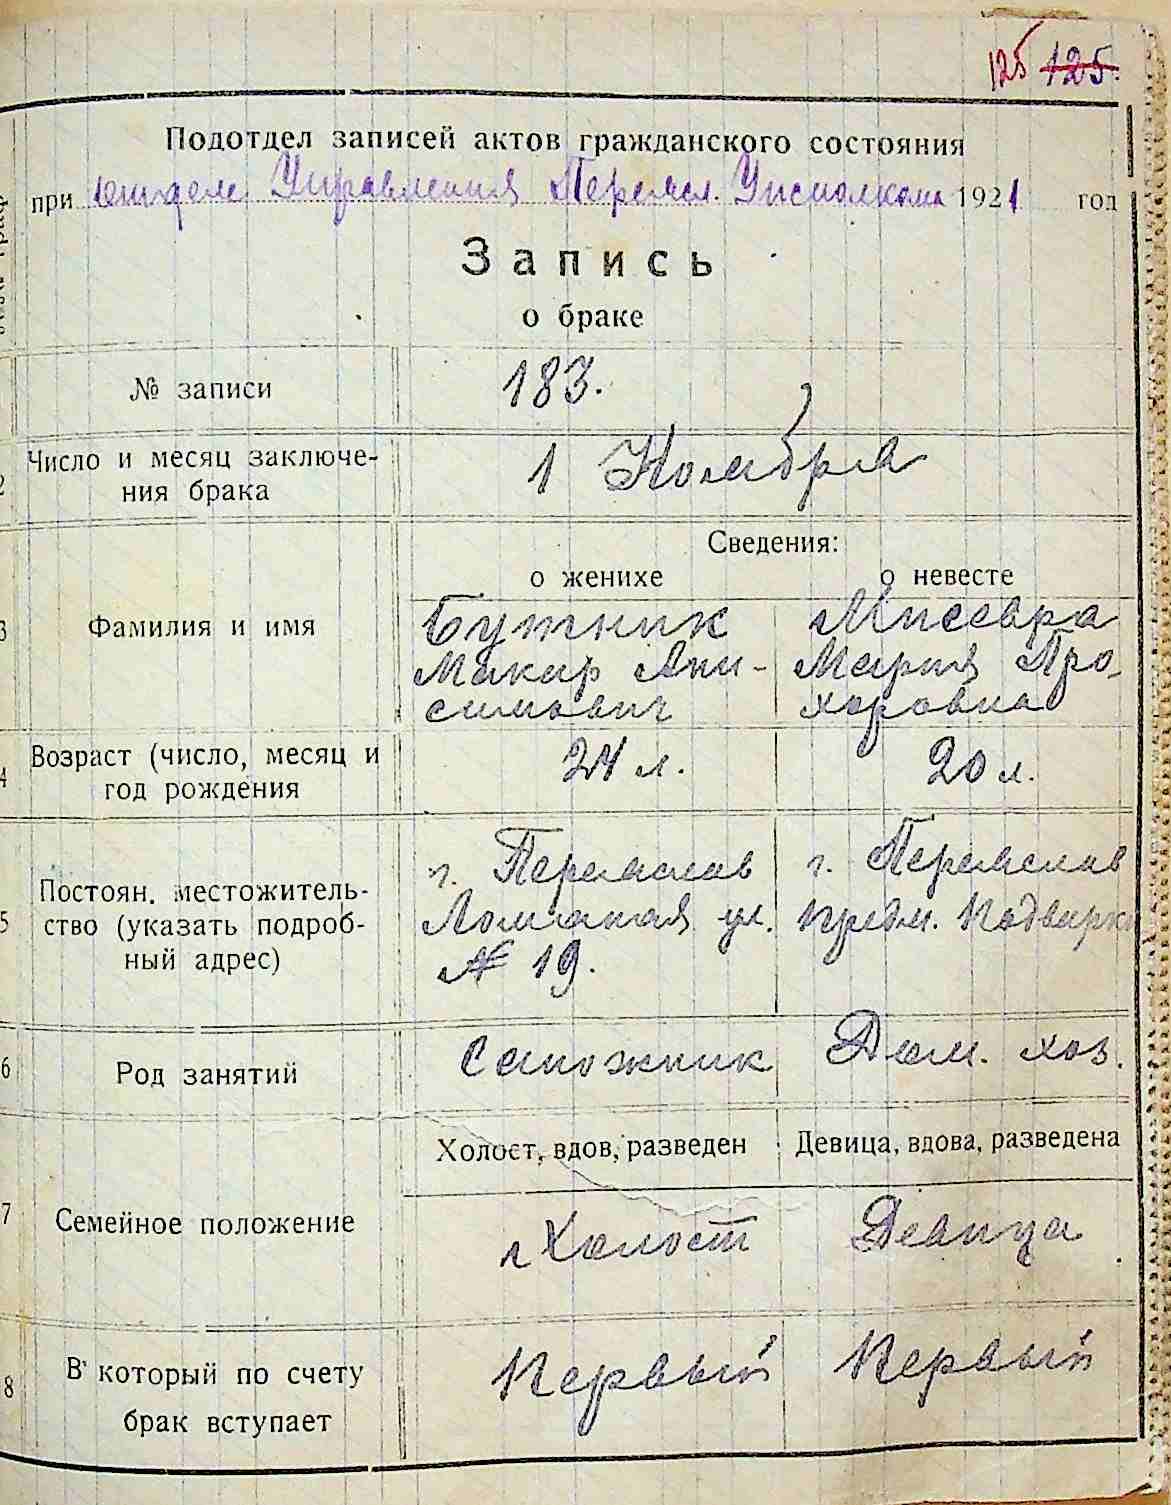 125 125.
Подотдел записей актов гражданского состояния
при отделе Управления Переясл. Исполкома 1921 год
Запись
о браке
№ записи 183.
Число и месяц заключе-
ния брака 1 Ноября
Сведения:
о женихе о невесте
3 Фамилия и имя Бутник
Макар Ани-
симович
Мария Про-
хоровна
4 Возраст (число, месяц и
год рождения 24 л. 20 л.
5 Постоян. местожитель-
ство (указать подроб-
ный адрес)
г. Переяслав
ул.
№ 19.
г. Переяслав
предм. Подварки
6 Род занятий Сапожник Дом. хоз.
Холост, вдов, разведен Девица, вдова, разведена
7 Семейное положение Холост Девица
8 В который по счету
брак вступает Первый Первый